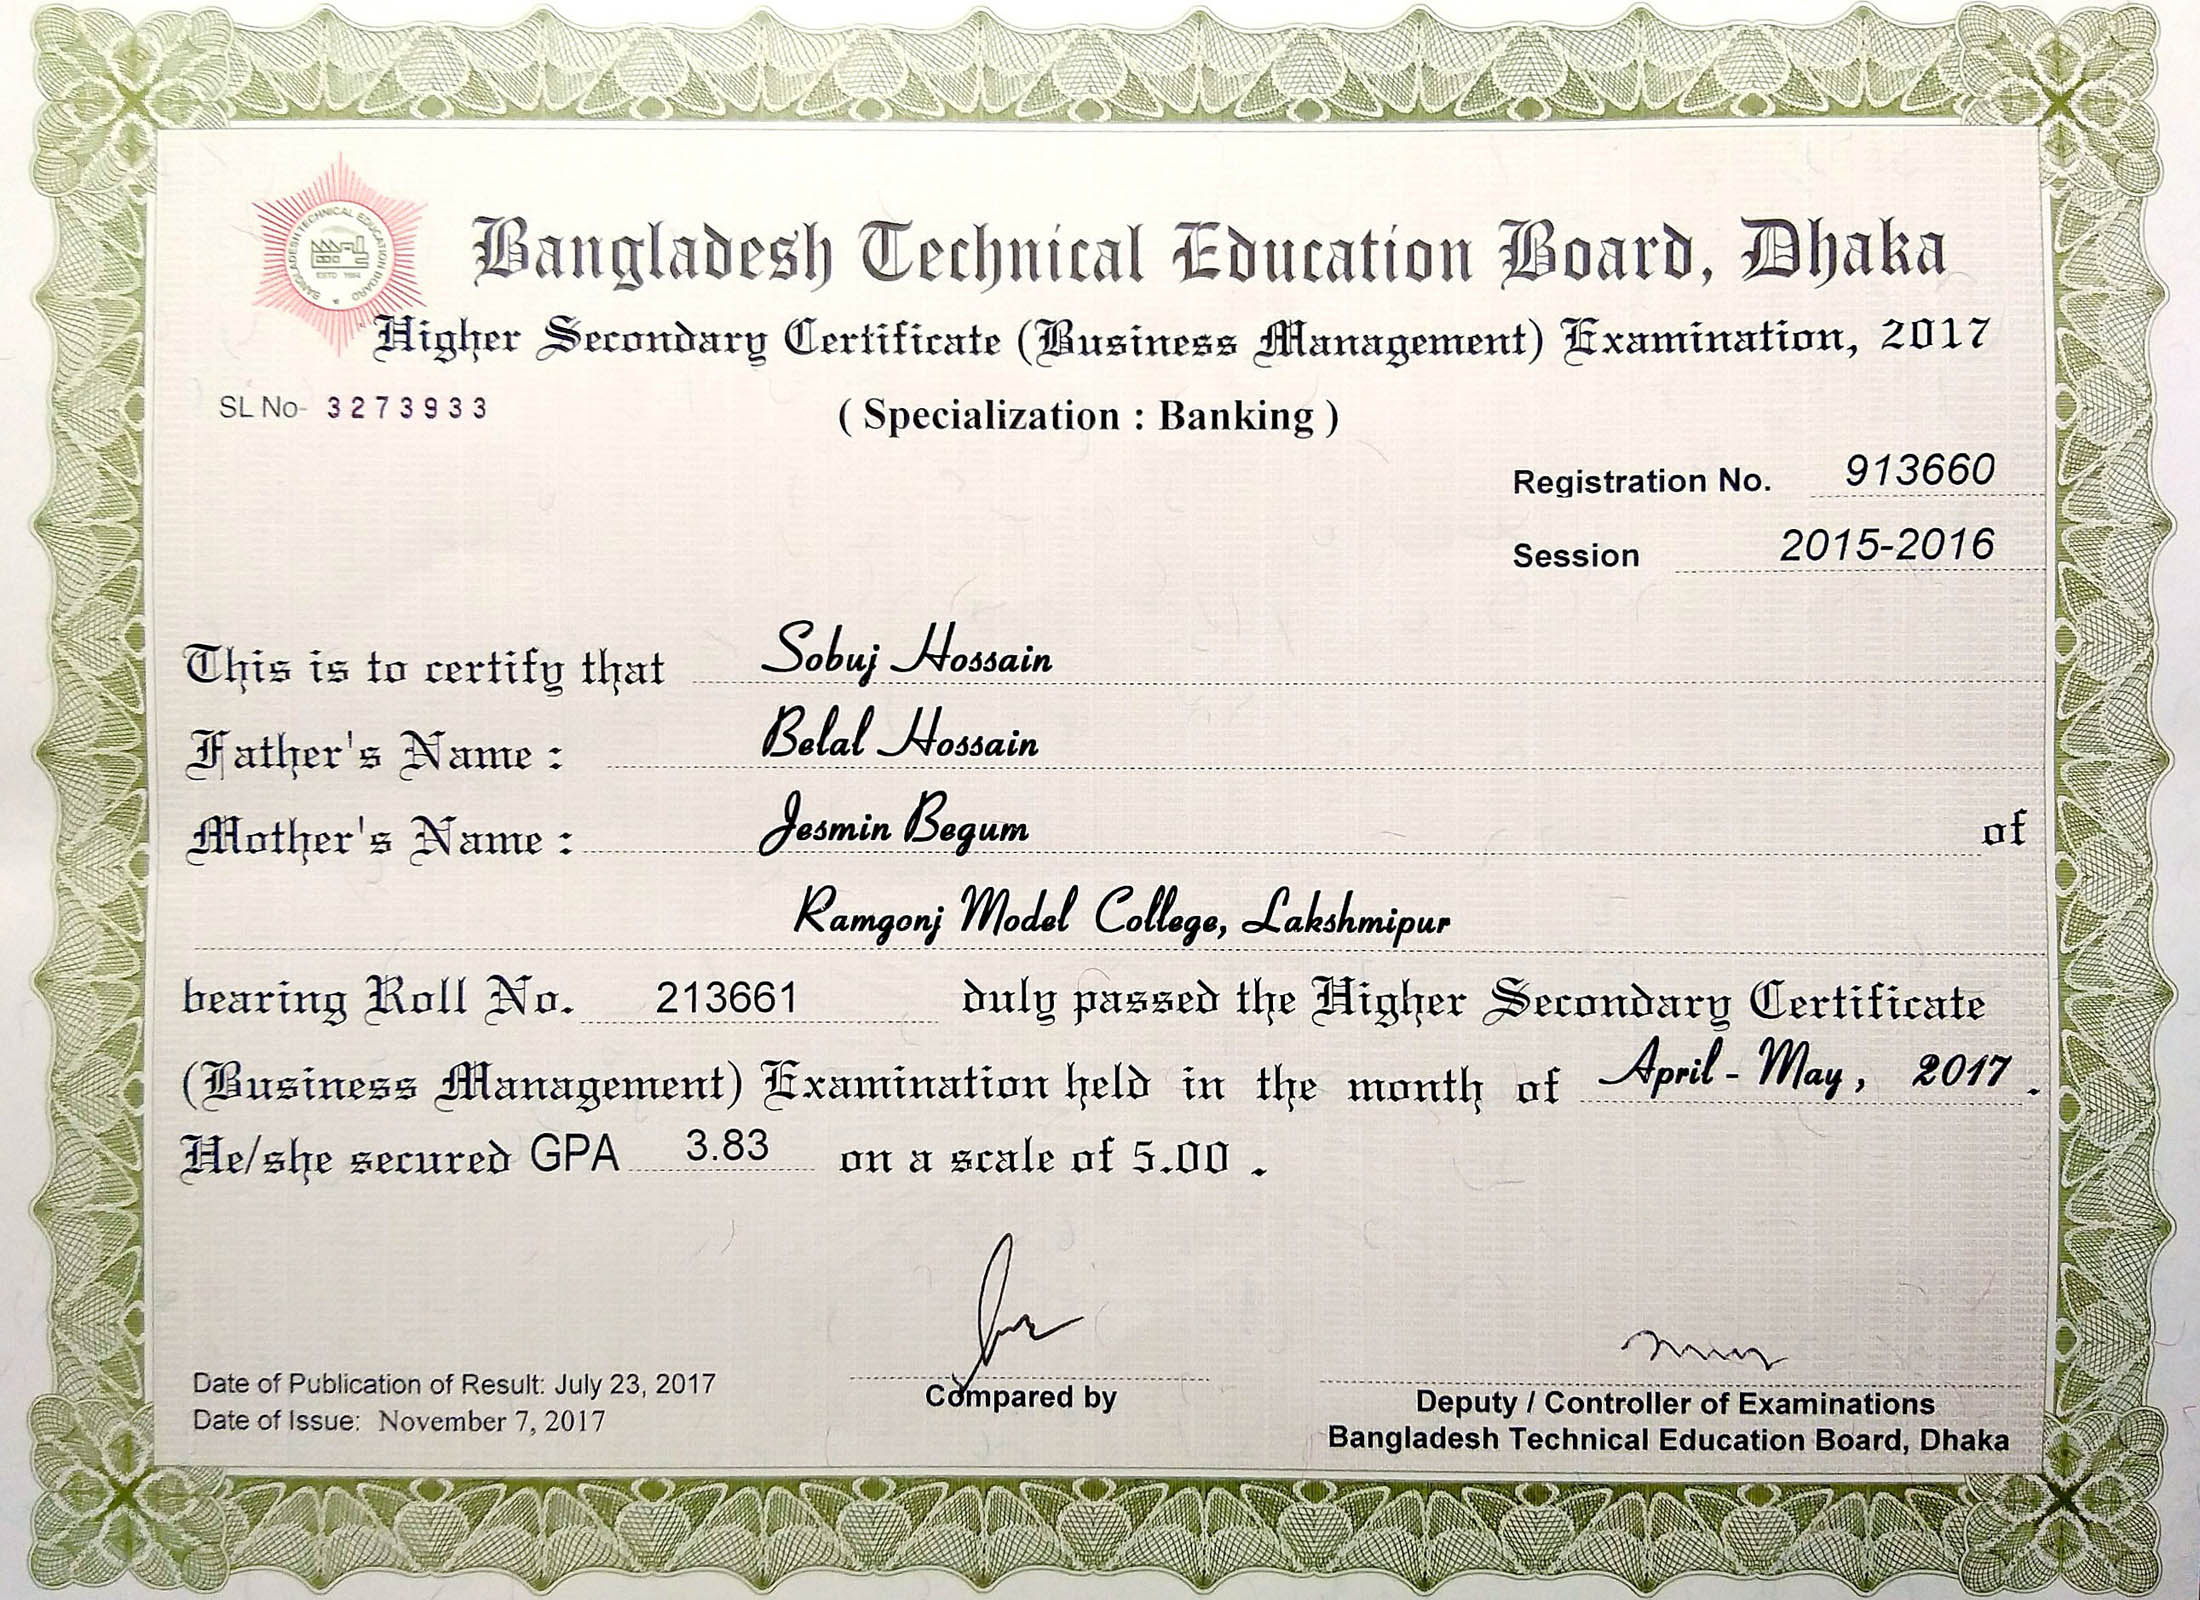 BANGLADESH TECHNICAL EDUCATION BOARD
ESTD 1954
Bangladesh Technical Education Board, Dhaka
Higher Secondary Certificate (Business Management) Examination, 2017
SL No- 3273933
( Specialization : Banking )
Registration No. 913660
Session 2015-2016
This is to certify that Sobuj Hossain
Father's Name : Belal Hossain
Mother's Name : Jesmin Begum of
Ramgonj Model College, Lakshmipur
bearing Roll No. 213661 duly passed the Higher Secondary Certificate
(Business Management) Examination held in the month of April - May, 2017 .
He/she secured GPA 3.83 on a scale of 5.00 .
Date of Publication of Result: July 23, 2017
Date of Issue: November 7, 2017
Compared by
Deputy / Controller of Examinations
Bangladesh Technical Education Board, Dhaka